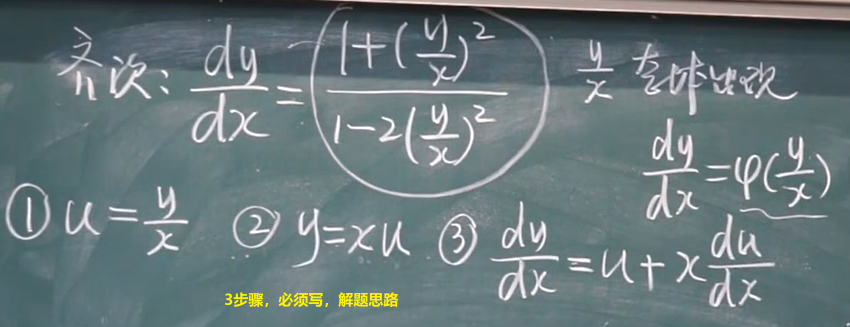 齐次: dy/dx = (1+(y/x)²)/(1-2(y/x)²) y/x 整体出现
dy/dx = φ(y/x)
① u = y/x ② y=xu ③ dy/dx = u + x du/dx
3步骤，必须写，解题思路